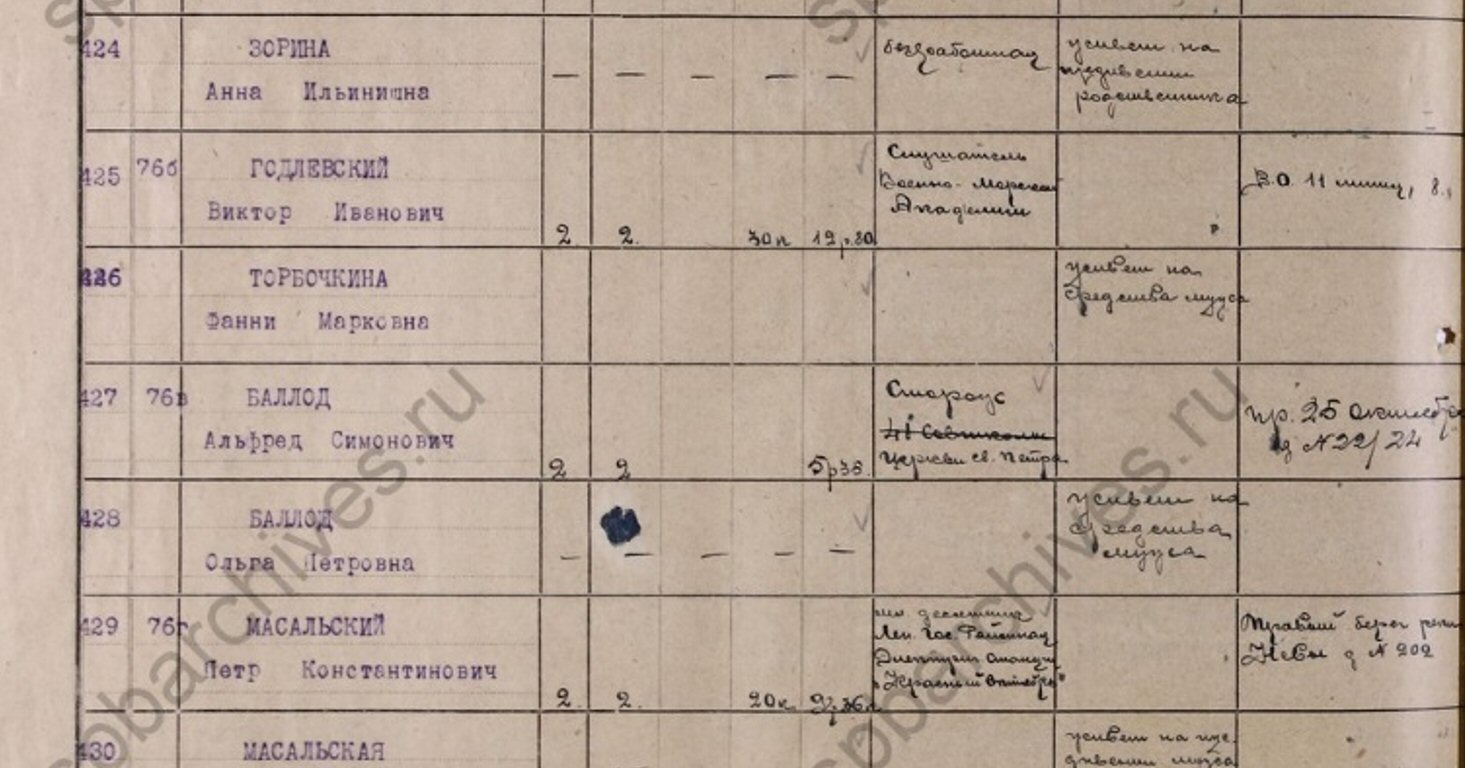 424 ЗОРИНА безработная живет на
Анна Ильинишна — — — — — иждивении
родственника
425 76б ГОДЛЕВСКИЙ Слушатель
Военно-Морской В.О. 11 линия, 8.,
Виктор Иванович 2 2. 30к 12р.80 Академии
426 ТОРБОЧКИНА живет на
средства мужа
Фанни Марковна
427 76в БАЛЛОД Сторож пр. 25 Октября
Альфред Симонович 2 2 5р38. Церкви св. Петра д N22/24
428 БАЛЛОД живет на
средства
Ольга Петровна — — — — — мужа
429 76г МАСАЛЬСКИЙ Правый берег реки
Лен. Гос. Районная Невы д N 202
Петр Константинович 2. 2. 20к Электрич станция
"Красный Октябрь"
430 МАСАЛЬСКАЯ живет на иж.
дивении мужа
spbarchives.ru
spbarchives.ru